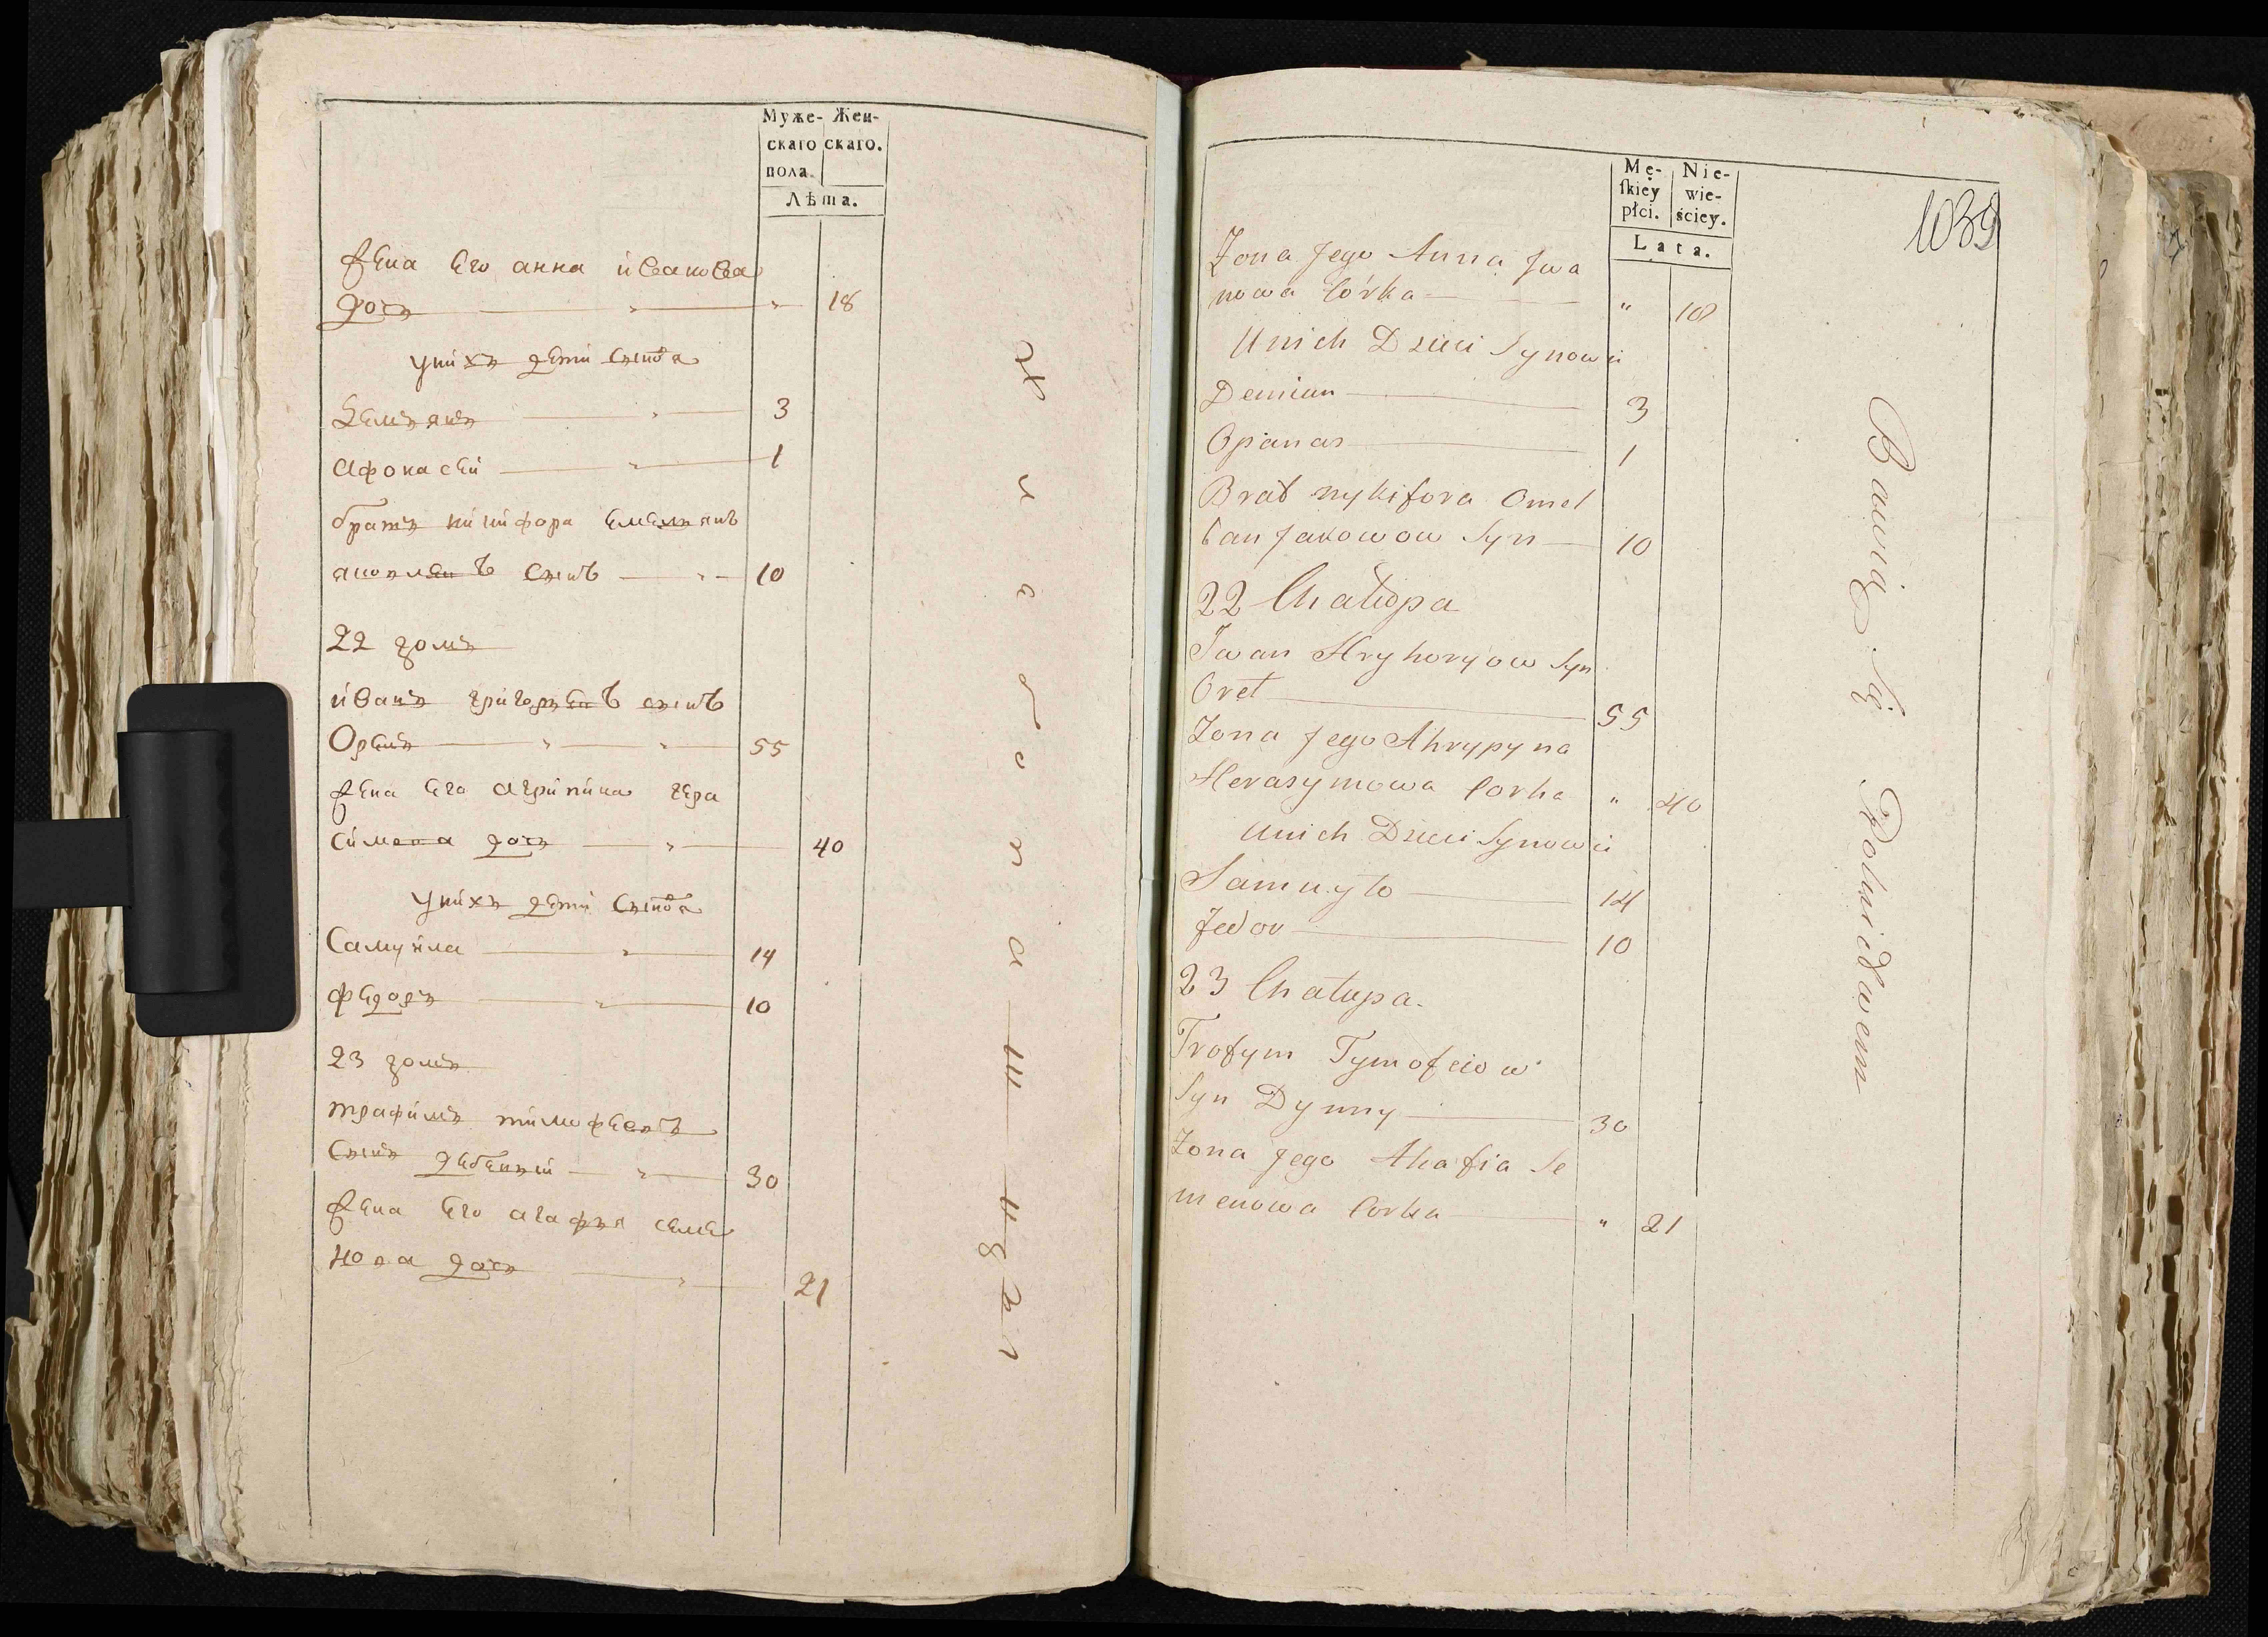 Муже-
скаго
пола.
Жен-
скаго.
Лѣта.
жена его анна иванова
дочь 18
у них дети сынова
Демъянъ 3
Афонасей 1
братъ никифора емелиянъ
яковлевъ сынъ 10
22 домъ
иванъ григорьевъ сынъ
Орелъ 55
жена его агрипина гера
симова дочь 40
у них дети сынова
Самуйла 14
федоръ 10
23 домъ
трафимъ тимофеевъ
сынъ 30
жена его агафья семе
нова дочь 21
Mę-
skiey
płci.
Nie-
wie-
ściey.
Lata.
1039
Zona Jego Anna Jwa
nowa Córka " 18
Unich Dzieci Synowii
Demian 3
Opanas 1
Brat nykifora Omel
ian Jakowow Syn 10
22 Chałupa
Iwan Hryhoryow Syn
Oreł 55
Zona Jego Ahrypyna
Herasymowa Corka " 40
Unich Dzieci Synowii
Samuyło 14
Fedor 10
23 Chałupa.
Trofym Tymofeiow
Syn 30
Zona Jego Ahafia Se
menowa Corka " 21
Bawią Się